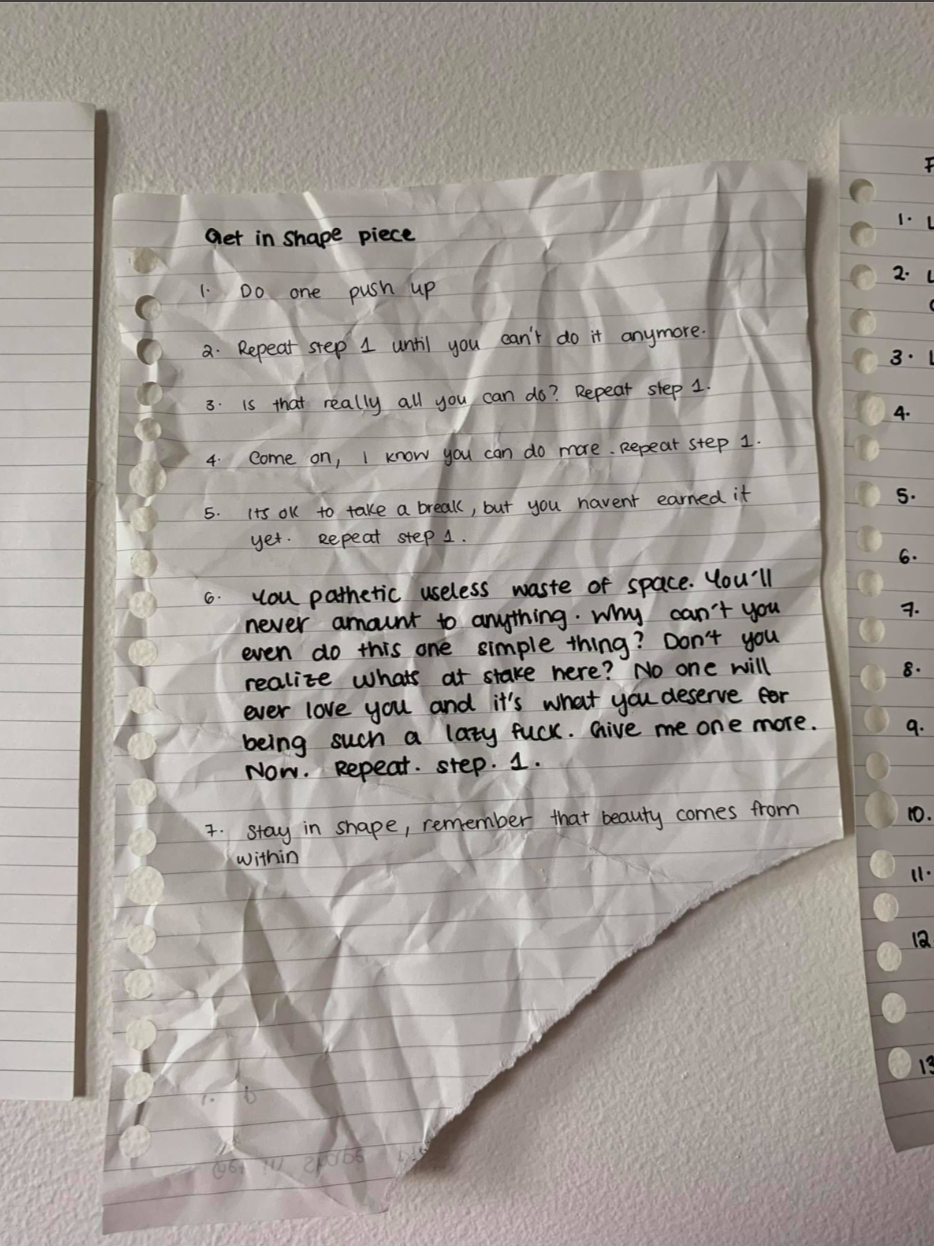 Get in shape piece
1. Do one push up
2. Repeat step 1 until you can't do it anymore.
3. is that really all you can do? Repeat step 1.
4. Come on, I know you can do more. Repeat step 1.
5. Its ok to take a break, but you havent earned it
yet. Repeat step 1.
6. You pathetic useless waste of space. You'll
never amount to anything. Why can't you
even do this one simple thing? Don't you
realize whats at stake here? No one will
ever love you and it's what you deserve for
being such a lazy fuck. Give me one more.
Now. Repeat. step. 1.
7. Stay in shape, remember that beauty comes from
within
1.
2.
3.
4.
5.
6.
7.
8.
9.
10.
11.
12
13